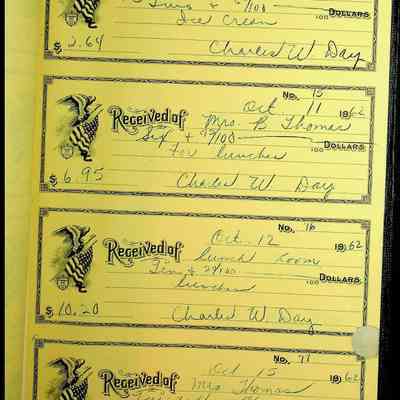 Two & /100 DOLLARS
Ice Cream
$ 2.64 Charles W Day
No. 15
Oct 11 1962
Received of Mrs. B Thomas
Six + 95/100 DOLLARS
For lunches
$ 6.95 Charles W Day
No. 16
Oct. 12 1962
Received of Lunch Room
Ten & 20/100 DOLLARS
lunches
$ 10.20 Charles W Day
No. 17
Oct 15 1962
Received of Mrs Thomas